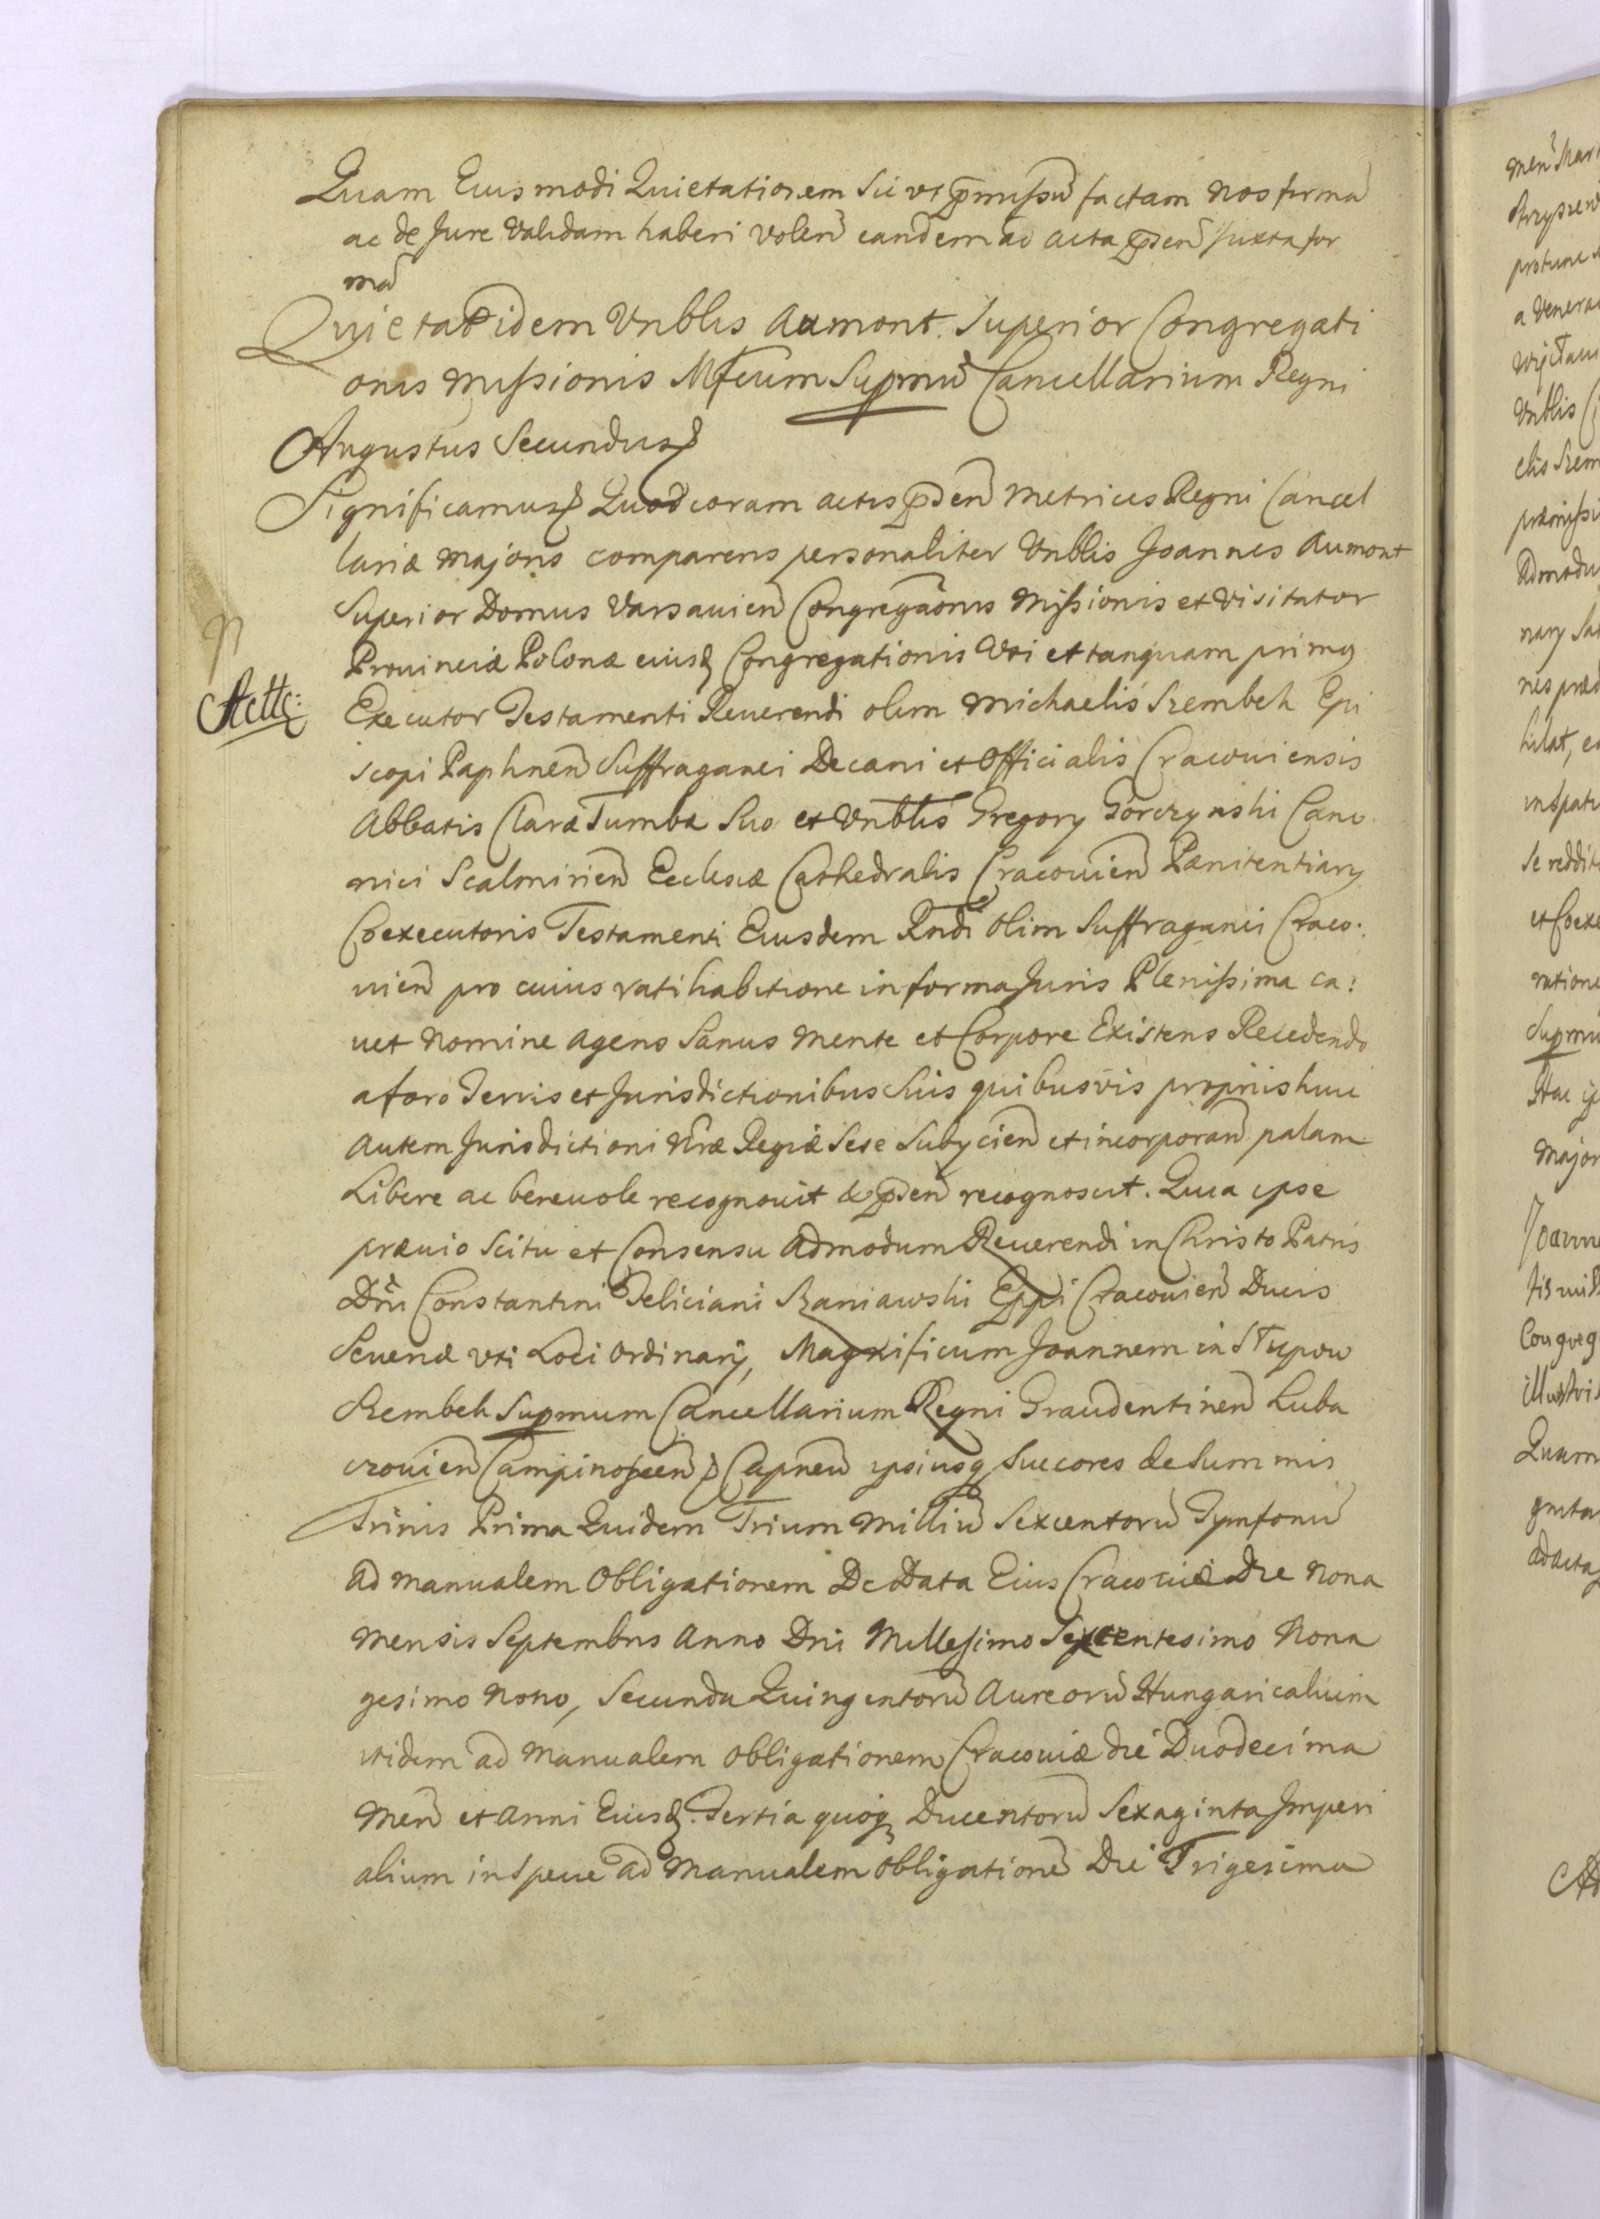 Quam Eiusmodi Quietationem Sic ut pmissũ factam Nos firmã
ac de Jure Validam haberi Volen̄ eandem ad acta p̄sen̄ juxta for
mã
Quietat idem Vnblis Aumont Superior Congregati
onis Missionis Mfcum Supmũ Cancellarium Regni
Augustus Secundus
Significamus Quod coram actis p̄sen̄ Metrices Regni Cancel
lariæ Majoris comparens personaliter Vnblis Joannes Aumont
Superior Domus Varsavien̄ Congregãonis Missionis et Visitator
Provinciæ Polonæ eiusd Congregationis Vti et tanquam primus
Actte:
Executor Testamenti Reverendi olim Michaelis Szembek Epi
scopi Paphnen̄ Suffraganei Decani et Officialis Cracoviensis
Abbatis Claræ Tumbæ Suo et Vnblis Gregory Gorczynski Cano
nici Scalmirien̄ Ecclesiæ Cathedralis Cracovien̄ Pænitentiary
Coexecutoris Testamenti Eiusdem Rndi Olim Suffraganei Craco:
vien̄ pro cuius ratihabitione in forma Juris Plenissima ca:
vet Nomine Agens Sanus Mente et Corpore Existens Recedendo
a foro Terris et Jurisdictionibus Suis quibusvis proprijs huic
Autem Jurisdictioni Nræ Regiæ Sese Subycien̄ et incorporan̄ palam
Libere ac benevole recognovit & p̄sen̄ recognoscit. Quia ipse
prævio Scitu et Consensu Admodum Reverendi in Christo Patris
Dñi Constantini Feliciani Szaniawski Eppi Cracovien̄ Ducis
Severiæ vti Loci Ordinarij, Magnificum Joannem in Słupow
Szembek Supmum Cancellarium Regni Graudentinen̄ Luba
czovien̄ Campinoscen̄ Capneũ ipsiusq Succores de Summis
Trinis Prima Quidem Trium Milliũ Sexcentorũ Tymfonũ
ad manualem Obligationem De Data Eius Cracoviæ Die Nona
Mensis Septembris Anno Dni Millesimo Sexcentesimo Nona
gesimo Nono, Secunda Quingentorũ Aureorũ Hungaricalium
itidem ad Manualem Obligationem Cracoviæ die Duodecima
Men̄ et Anni Eiusd. Tertia quoq Ducentorũ Sexaginta Imperi
alium in Specie ad Manualem Obligationẽ Die Trigesima